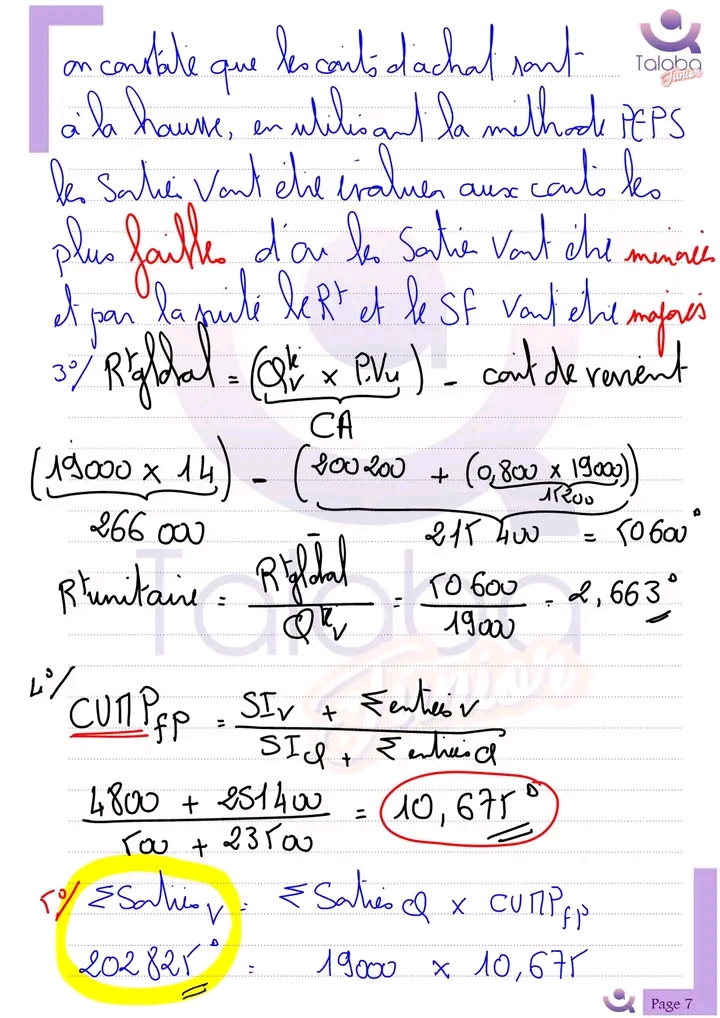 Talaba
Junior
on constate que les coûts d'achat sont
à la hausse, en utilisant la méthode PEPS
les sorties vont être évaluer aux coûts les
plus faibles d'où les sorties vont être minorées
et par la suite le Rt et le SF vont être majorés
3°/ Rt global = (Qté v × P.Vu) - coût de revient
CA
(19000 × 14) - (200 200 + (0,800 × 19000))
15200
266 000 - 215 400 = 50 600ᴰ
Rt unitaire = Rt global / Qté v = 50 600 / 19000 = 2,663ᴰ
4°/ CUMP fp = SI v + Σ entrées v / SI Q + Σ entrées Q
4800 + 251400 / 500 + 23500 = 10,675ᴰ
5°/ Σ Sorties v = Σ Sorties Q × CUMP fp
202 825ᴰ = 19000 × 10,675
Talaba
Junior
Page 7